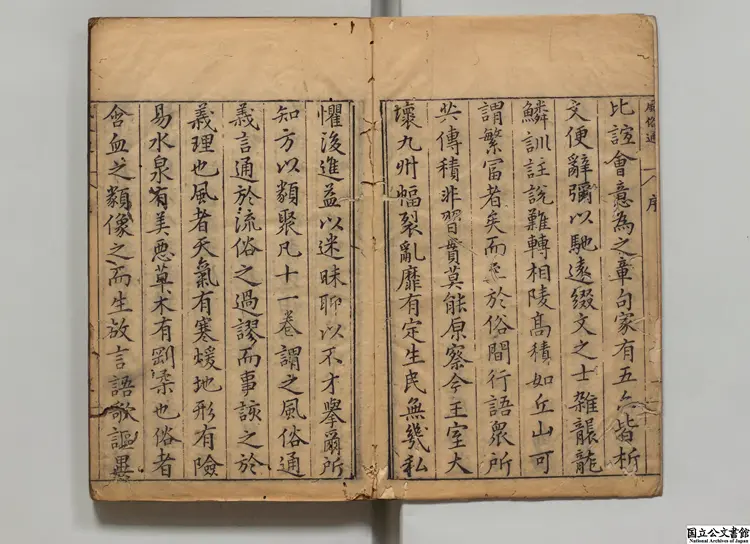 風俗通
序
比誼會意為之章句家有五六皆析
文便辭彌以馳遠綴文之士雜襲龍
鱗訓註說難轉相陵髙積如丘山可
謂繁富者矣而至於俗間行語衆所
共傳積非習貫莫能原察今王室大
壞九州幅裂亂靡有定生民無幾私
懼後進益以迷昧聊以不才舉爾所
知方以類聚凡十一卷謂之風俗通
義言通於流俗之過謬而事該之於
義理也風者天氣有寒煖地形有險
易水泉有美惡草木有剛柔也俗者
含血之類像之而生故言語歌謳異
国立公文書館
National Archives of Japan